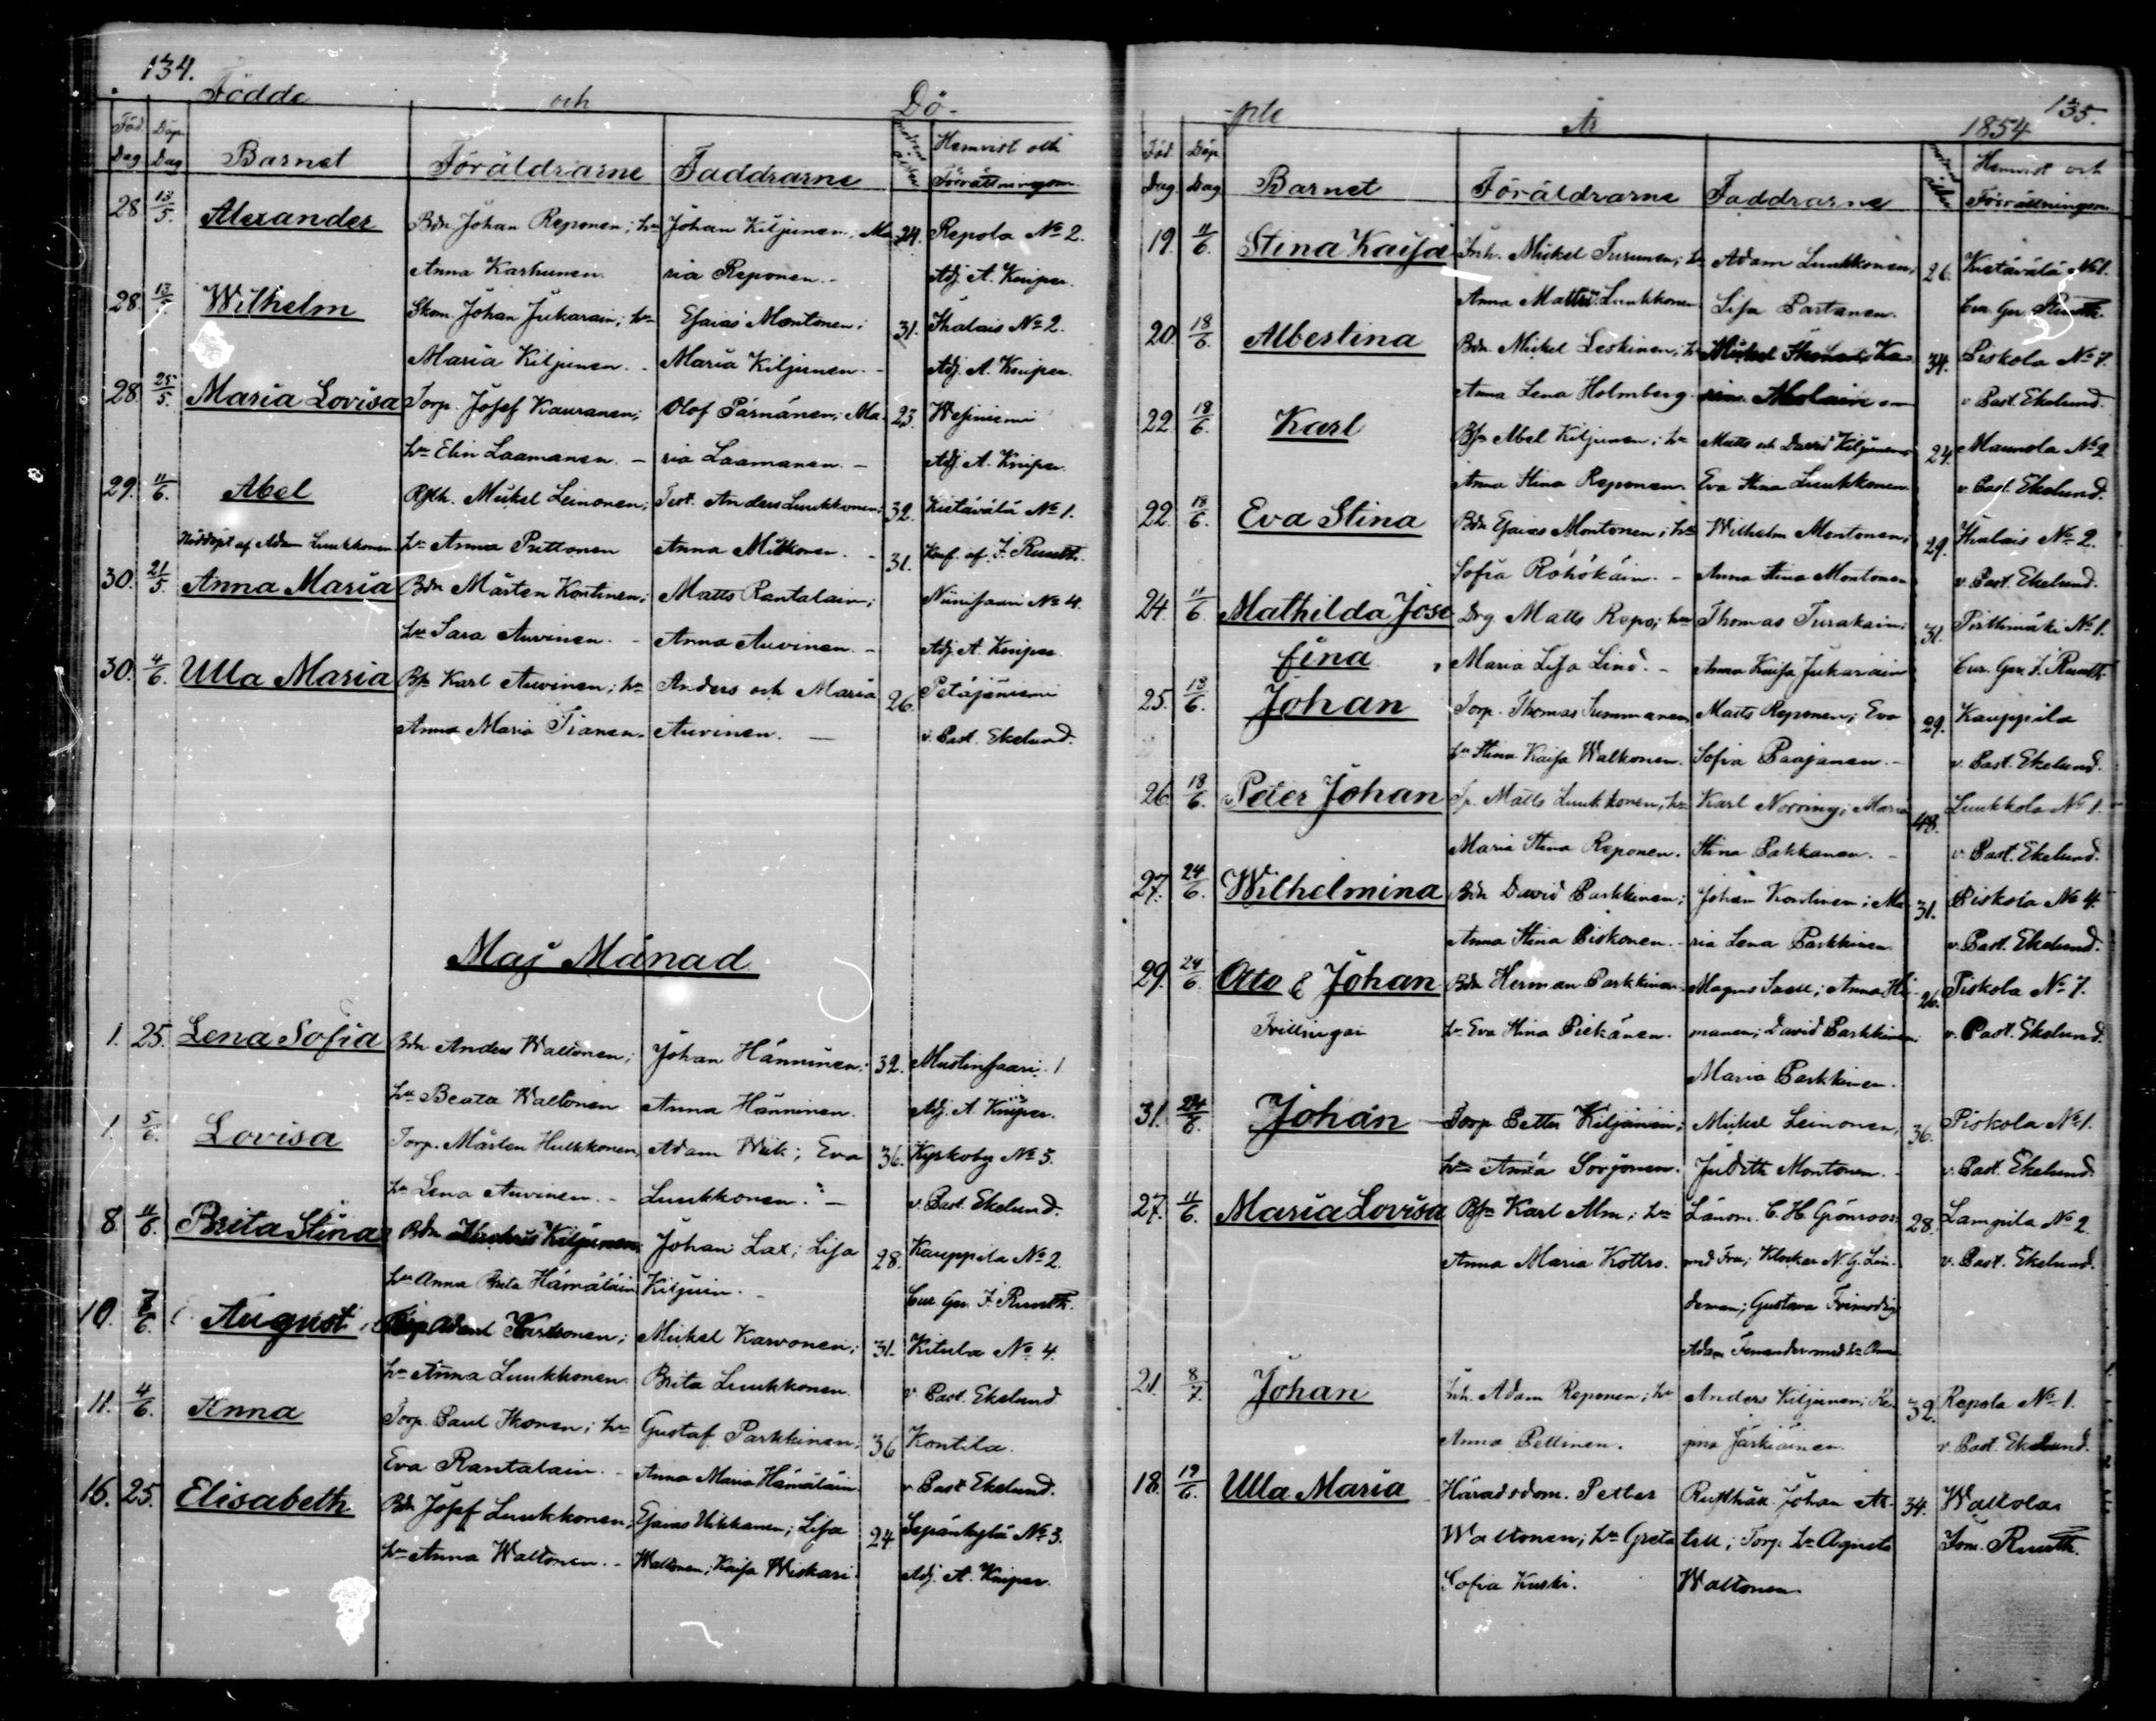 134.
Födde och Dö-
Föd. Dag Döp. Dag Barnet Föräldrarne Faddrarne Hemvist och Förrättningsm.
28 13/5. Alexander Bdn Johan Reponen; h:u Johan Kiljunen, Ma- 24. Repola No 2.
Anna Karhunen. ria Reponen. - Adj. A. Kniper.
28. 13/5 Wilhelm Skom. Johan Jukarain; h:u Esaias Montonen; 31. Ihalais No 2.
Maria Kiljunen. - Maria Kiljunen. - Adj. A. Kniper.
28. 25/5. Maria Lovisa Torp. Josef Kauranen; Olof Pärnänen; Ma- 23. Wesiniemi
h:u Elin Laamanen. - ria Laamanen. - Adj. A. Kniper.
29. 11/6. Abel Mickel Leinonen; Anders Luukkonen; 32. Kietävälä No 1.
Nöddöpt af Adam Luukkonen h:u Anna Puttonen Anna Mikkonen. - 31. Konf. af. F. Runth.
30. 21/5. Anna Maria Bdn Mårten Kontinen; Matts Rantalain; Niinisaari No 4.
h:u Sara Auvinen. - Anna Auvinen. - Adj. A. Kniper.
30. 4/6. Ulla Maria Bsn Karl Auvinen; h:u Anders och Maria 26. Petäjäniemi
Anna Maria Tianen. Auvinen. - v. Past. Ekelund.
Maj Månad
1. 25. Lena Sofia Bdn Anders Waltonen; Johan Hänninen. 32. Mustinsaari. 1
h:u Beata Waltonen Anna Hänninen. Adj. A. Kniper.
1. 5/6. Lovisa Torp. Mårten Hulkkonen, Adam Wiik; Eva 36. Kyrkoby No 5.
h:u Lena Auvinen. - Luukkonen. - v. Past. Ekelund.
8. 11/6. Brita Stina Bdn Kiljunen; Johan Lax; Lisa 28. Kauppila No 2.
h:u Anna Brita Hämäläin Kiljuin. - Cur. Gr. F. Runth.
10. 7/6. August Torp Adam; Mickel Karvonen; 31. Kitula No 4.
h:u Anna Luukkonen. Brita Luukkonen. v. Past. Ekelund
11. 4/6. Anna Torp. Paul Ikonen; h:u Gustaf Parkkinen; 36 Kontila.
Eva Rantalain. - Anna Maria Hämäläin. v. Past. Ekelund.
16. 25. Elisabeth Bdn Josef Luukkonen; Esaias Ukkanen; Lisa 24 Sepänkylä No 3.
h:u Anna Waltonen. - Waltonen; Kaisa Wiskari Adj. A. Kniper.
135.
-pte År 1854
Föd. Dag. Döp. Dag Barnet Föräldrarne Faddrarne Hemvist och Förrättningsm.
19. 11/6. Stina Kaisa Inh. Mickel Turunen; h:u Adam Luukkonen; 26. Kietävälä No 1.
Anna Luukkonen Lisa Partanen. Cur. Gr. Runth.
20. 18/6. Albertina Bdn. Mickel Leskinen; h:u Mickel Ikonen; Ka- 34. Piskola No 7.
Anna Lena Holmberg. v. Past. Ekelund.
22. 18/6. Karl Bsn Abel Kiljunen; h:u Matts och David Kiljunen; 24. Maunola No 2
Anna Stina Reponen. Eva Stina Luukkonen. v. Past. Ekelund.
22. 18/6. Eva Stina Bdn Esaias Montonen; h:u Wilhelm Montonen; 29. Ihalais No 2.
Sofia Röhökäin. - Anna Stina Montonen v. Past. Ekelund.
24. 11/6. Mathilda Jose- Drg Matts Repo; h:u Thomas Turakain; 31. Pirttimäki No 1.
fina Maria Lisa Lind. - Anna Kaisa Jukarain Cur. Gr. F. Runth.
25. 13/6. Johan Torp. Thomas Summanen, Matts Reponen; Eva 29. Kauppila
h:u Stina Kaisa Walkonen. Sofia Paajanen. - v. Past. Ekelund.
26. 18/6. Peter Johan Sp. Matts Luukkonen; h:u Karl Norring; Maria 48. Luukkola No 1.
Maria Stina Reponen. Stina Pakkanen. - v. Past. Ekelund.
27. 24/6. Wilhelmina Bdn David Parkkinen; Johan Kontinen; Ma- 31. Piskola No 4.
Anna Stina Piskonen. - ria Lena Parkkinen v. Past. Ekelund.
29. 24/6. Otto & Johan Bdn Herman Parkkinen. Magnus; Anna 26. Piskola No 7.
Tvillingar h:u Eva Stina Pitkänen. manen; David Parkkinen; v. Past. Ekelund.
Maria Parkkinen.
31. 24/6. Johan Torp. Petter Kiljunen; Mickel Leinonen, 36. Piskola No 1.
h:u Anna Sorjonen. Judith Montonen. - v. Past. Ekelund.
27. 11/6. Maria Lovisa Bsn Karl Alm; h:u Länom. C. H. Grönroos 28. Lampila No 2.
Anna Maria Kottro. med Fru; Klockar N. G. Lin- v. Past. Ekelund.
deman; Gustava Frimodig
Adam med h:u Anna
21. 8/7. Johan Inh. Adam Reponen; h:u Anders Kiljunen; Re- 32. Repola No 1.
Anna Pellinen. gina Järkiäinen. v. Past. Ekelund.
18. 19/6. Ulla Maria Häradsdom. Petter Johan At- 34. Waltola
Waltonen; h:u Greta tell; Torp. h:u Agneta Runth.
Sofia Kuski. Waltonen.